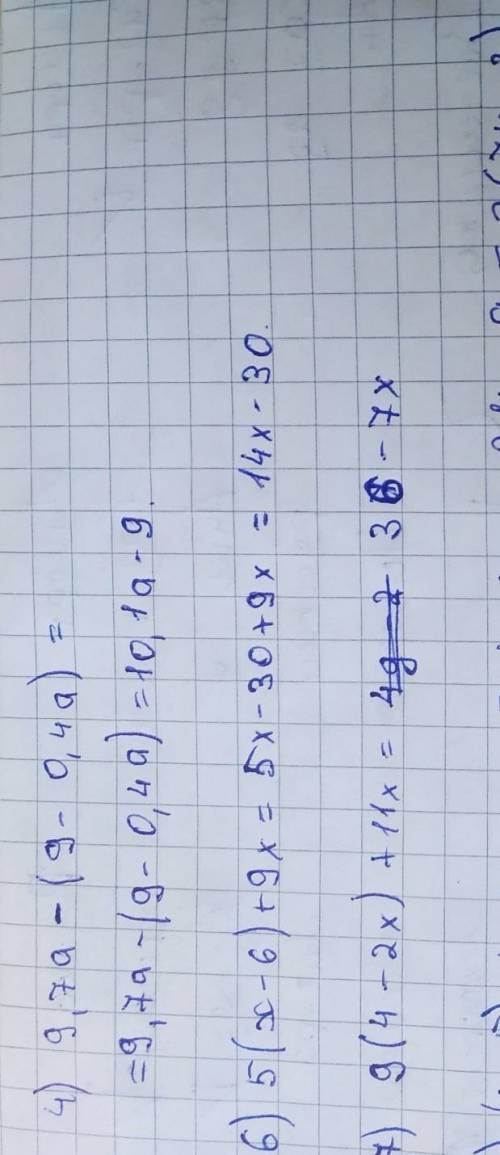 4) 9,7a - (9 - 0,4a) =
= 9,7a - (9 - 0,4a) = 10,1a - 9.
6) 5(x - 6) + 9x = 5x - 30 + 9x = 14x - 30.
7) 9(4 - 2x) + 11x = 36 - 7x